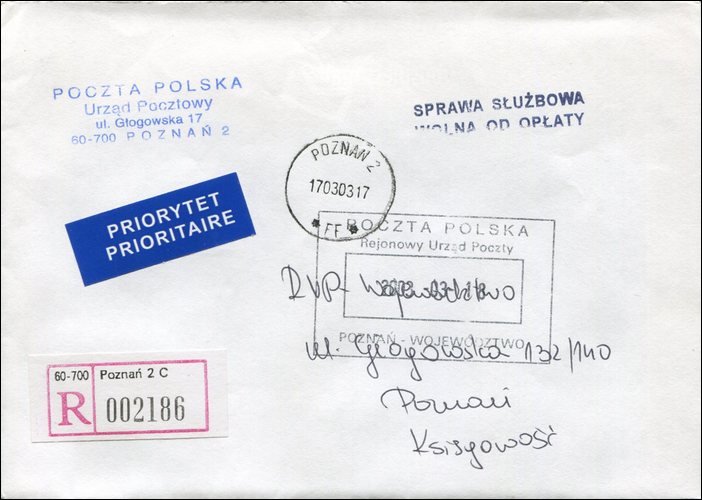 POCZTA POLSKA
Urząd Pocztowy
ul. Głogowska 17
60-700 POZNAŃ 2
SPRAWA SŁUŻBOWA
WOLNA OD OPŁATY
PRIORYTET
PRIORITAIRE
POZNAŃ 2
17030317
* FF *
POCZTA POLSKA
Rejonowy Urząd Poczty
POZNAŃ - WOJEWÓDZTWO
RUP- Województwo
ul. Głogowska 132/140
Poznań
Księgowość
60-700 Poznań 2 C
R 002186